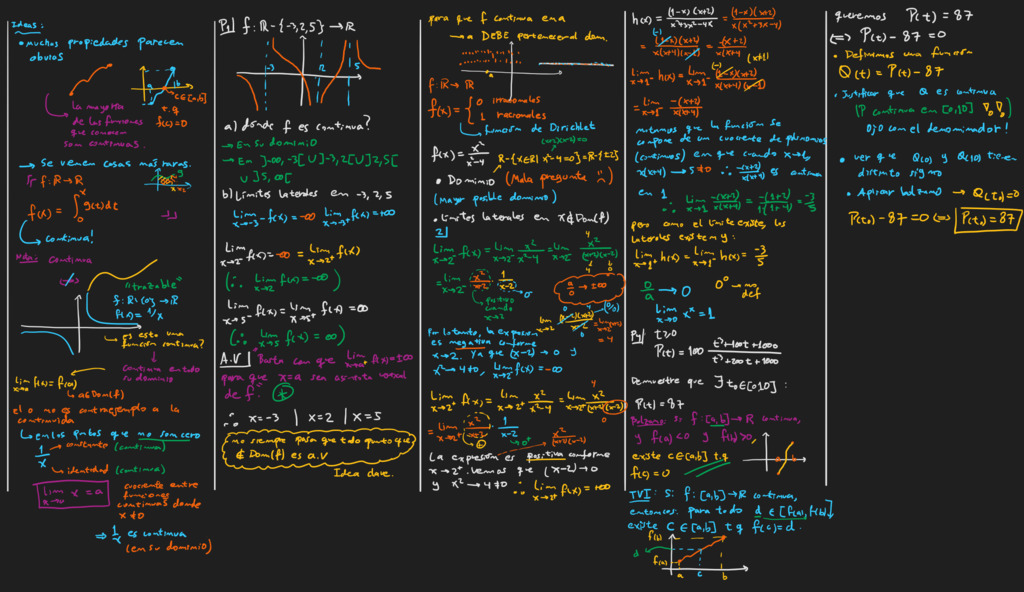 Ideas:
• muchas propiedades parecen
obvias
La mayoría
de las funciones
que conocen
son continuas.
a
b
c∈[a,b]
t.q
f(c)=0
→ Se vienen cosas más raras.
f: R→R
f(x) = ∫₀ˣ g(t)dt
↳ continua!
continua
"trazable"
f: R\{0} → R
f(x) = 1/x
¿Es esto una
función continua?
continua en todo
su dominio
lim f(x) = f(a)
x→a
↳ a∈Dom(f)
el 0 no es contraejemplo a la
continuidad
↳ en los puntos que no son cero
1 → constante (continua)
x → identidad (continua)
lim x = a
cociente entre
funciones
continuas donde
x≠0
⇒ 1/x es continua
(en su dominio)
P1 f: R-{-3,2,5} → R
-3
5
a) dónde f es continua?
- En su dominio
- En ]-∞,-3[ U ]-3,2[ U ]2,5[
U ]5,∞[
b) Límites laterales en -3, 2, 5
lim x→-3⁻ f(x) = -∞ lim x→-3⁺ f(x) = +∞
lim x→2⁻ f(x) = -∞ = lim x→2⁺ f(x)
(∴ lim x→2 f(x) = -∞)
lim x→5⁻ f(x) = lim x→5⁺ f(x) = ∞
(∴ lim x→5 f(x) = ∞)
A.V "Basta con que lim f(x) = ±∞
para que x=a sea asíntota vertical
de f"
∴ x=-3 | x=2 | x=5
no siempre pasa que todo punto que
∉ Dom(f) es a.v
Idea clave.
para que f continua en a
→ a DEBE pertenecer al dom.
a
f: R→R
f(x) = { 0 irracionales
1 racionales
↳ función de Dirichlet
(x+2)(x-2)=0
f(x) = x²/(x²-4)
R-{x∈R| x²-4=0} = R-{±2}
• Dominio (Mala pregunta)
(Mayor posible dominio)
• Límites laterales en x∉Dom(f)
2
lim x→2⁻ f(x) = lim x→2⁻ x²/(x²-4) = lim x→2⁻ x²/((x+2)(x-2))
= lim x→2⁻ x²/(x+2) · 1/(x-2)
positivo
cuando
x→2
a/0 → ±∞
Por lo tanto, la expresión
es negativa conforme
x→2. Ya que (x-2) → 0 y
x² → 4≠0, lim x→2⁻ f(x) = -∞
lim x→2⁺ f(x) = lim x→2⁺ x²/(x²-4) = lim x→2⁺ x²/((x+2)(x-2))
= lim x→2⁺ x²/(x+2) · 1/(x-2)
x²/((x+2)(x-2))
La expresión es positiva conforme
x→2⁺. Vemos que (x-2) → 0
y x² → 4≠0 ∴ lim x→2⁺ f(x) = +∞
h(x) = (1-x)(x+2)/(x³+3x²-4x) = (1-x)(x+2)/(x(x²+3x-4))
= (1-x)(x+2)/(x(x+4)(x-1)) = -(x+2)/(x(x+4))
lim x→1⁻ h(x) = lim x→1⁻ (1-x)(x+2)/(x(x+4)(x-1))
= lim x→1⁻ -(x+2)/(x(x+4))
notamos que la función se
compone de un cociente de polinomios
(continuos) en que cuando x→1,
x(x+4) → 5≠0 ∴ -(x+2)/(x(x+4)) es continua
en 1
∴ lim x→1⁻ -(x+2)/(x(x+4)) = -(1+2)/(1(1+4)) = -3/5
pero como el límite existe, los
laterales existen y:
lim x→1⁺ h(x) = lim x→1⁻ h(x) = -3/5
0/a → 0
0⁰ → no
def
lim x→0 xˣ = 1
P4 t≥0
P(t) = 100 (t²+10t+1000)/(t²+200t+1000)
Demuestre que ∃ t₀∈[0,10]:
P(t₀) = 87
Bolzano: si f: [a,b]→R continua,
y f(a)<0 y f(b)>0,
existe c∈[a,b] t.q
f(c)=0
a
b
TVI: si f: [a,b]→R continua,
entonces para todo d∈[f(a),f(b)],
existe c∈[a,b] t.q f(c)=d.
f(b)
d
f(a)
a
c
b
queremos P(t₀) = 87
⟺ P(t₀) - 87 = 0
• Definimos una función
Q(t) = P(t) - 87
• Justificar que Q es continua
(P continua en [0,10])
Ojo con el denominador!
• ver que Q(0) y Q(10) tienen
distinto signo
• Aplicar bolzano → Q(t₀)=0
P(t₀)-87=0 ⟺ P(t₀)=87